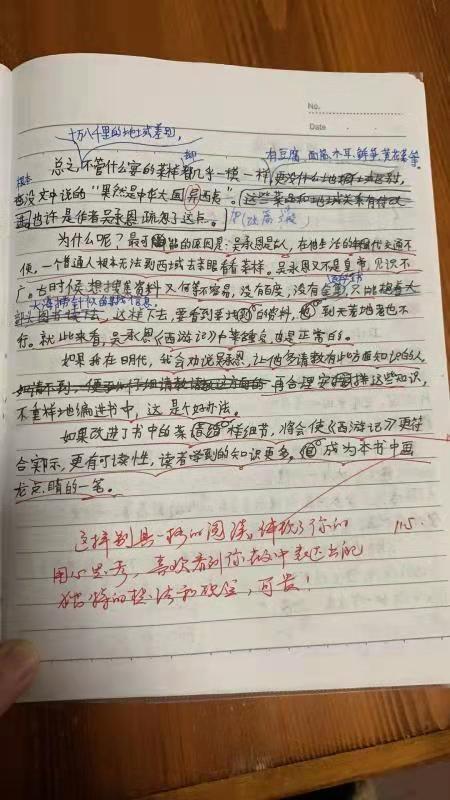 No.
Date
十万八千里的地域差别,
却
有豆腐、面筋、木耳、鲜笋、黄花菜等。
总之,不管什么宴的菜样都几乎一模一样,
根本
也没文中说的“果然是中华大国,异西方”。
也许是作者吴承恩疏忽了这点。
为什么呢?最可能的原因是:吴承恩是古人,在他生活的明代交通不
便,一个普通人根本无法到西域去亲眼看看菜样。吴承恩又不是皇帝,见识不
广。古时候想搜集资料又何等不容易,没有百度,没有
大海捞针似的
这样下去,要看到某地的资料,到天荒地老也不
行。就此来看,吴承恩《西游记》中菜重复也是正常的。
如果我在明代,我会劝说吴承恩,让他多请教有此方面知识的人,
再合理安排这些知识,
不重样地编进书中,这是个好办法。
如果改进了书中的菜样细节,将会使《西游记》更符
合实际,更有可读性,读者学到的知识更多,成为本书中画
龙点睛的一笔。
这样别具一格的阅读,体现了你的
用心思考,喜欢看到你在文中表达出的
独特的想法和观念,可贵!
11.5.